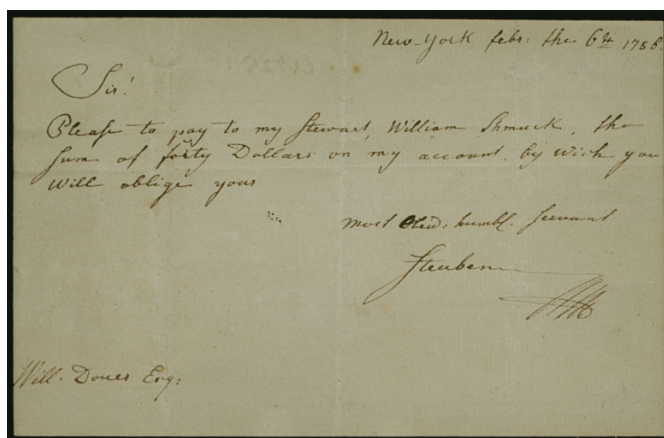 New-York febr: the 6th 1786.
Sir!
Please to pay to my Stewart, William Shmuck, the
Sum of forty Dollars on my account. by wich you
will oblige yours
most Obed. humbl. Servant
Steuben
Will. Doues Esq: